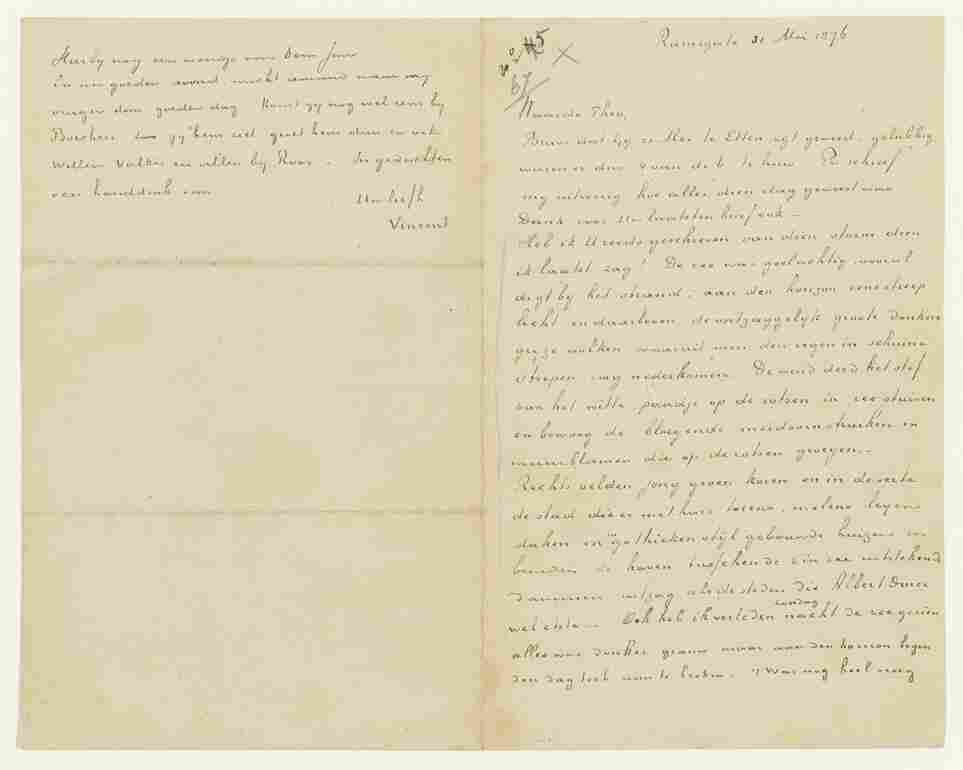 Hierby nog een woordje voor Oom Jan
En nu goeden avond, mocht iemand naar my
vragen dan goeden dag Komt gy nog wel eens by
Borchers zoo gy hem ziet groet hem dan en ook
Willem Valkis en allen by Roos. In gedachten
een handdruk van
Uw liefh
Vincent
No 45
67
Ramsgate 31 Mei 1876
Waarde Theo,
Bravo dat gy 21 Mei te Etten zyt geweest, gelukkig
waren er dus 4 van de 6 te huis. Pa schreef
my uitvoerig hoe alles dien dag geweest was
Dank voor Uw laatsten brief ook.
Heb ik U reeds geschreven van dien storm dien
ik laatst zag! De zee was geelachtig vooral
digt by het strand; aan den horizon eene streep
licht en daarboven de ontzaggelyk groote donkere
gryze wolken waaruit men den regen in schuine
strepen zag nederkomen. De wind deed het stof
van het witte paadje op de rotsen in zee stuiven
en bewoog de bloeyende meidoornstruiken en
muurbloemen die op de rotsen groeyen.
Rechts velden jong groen koren en in de verte
de stad die er met haar torens, molens leyen
daken en in Gothieken styl gebouwde huizen en
beneden de haven tusschen de 2 in zee uitstekende
dammen uitzag als de steden die Albert Durer
wel etste. Ook heb ik verleden zondag nacht de zee gezien
alles was donker grauw maar aan den horizon begon
den dag toch aan te breken. 't Was nog heel vroeg